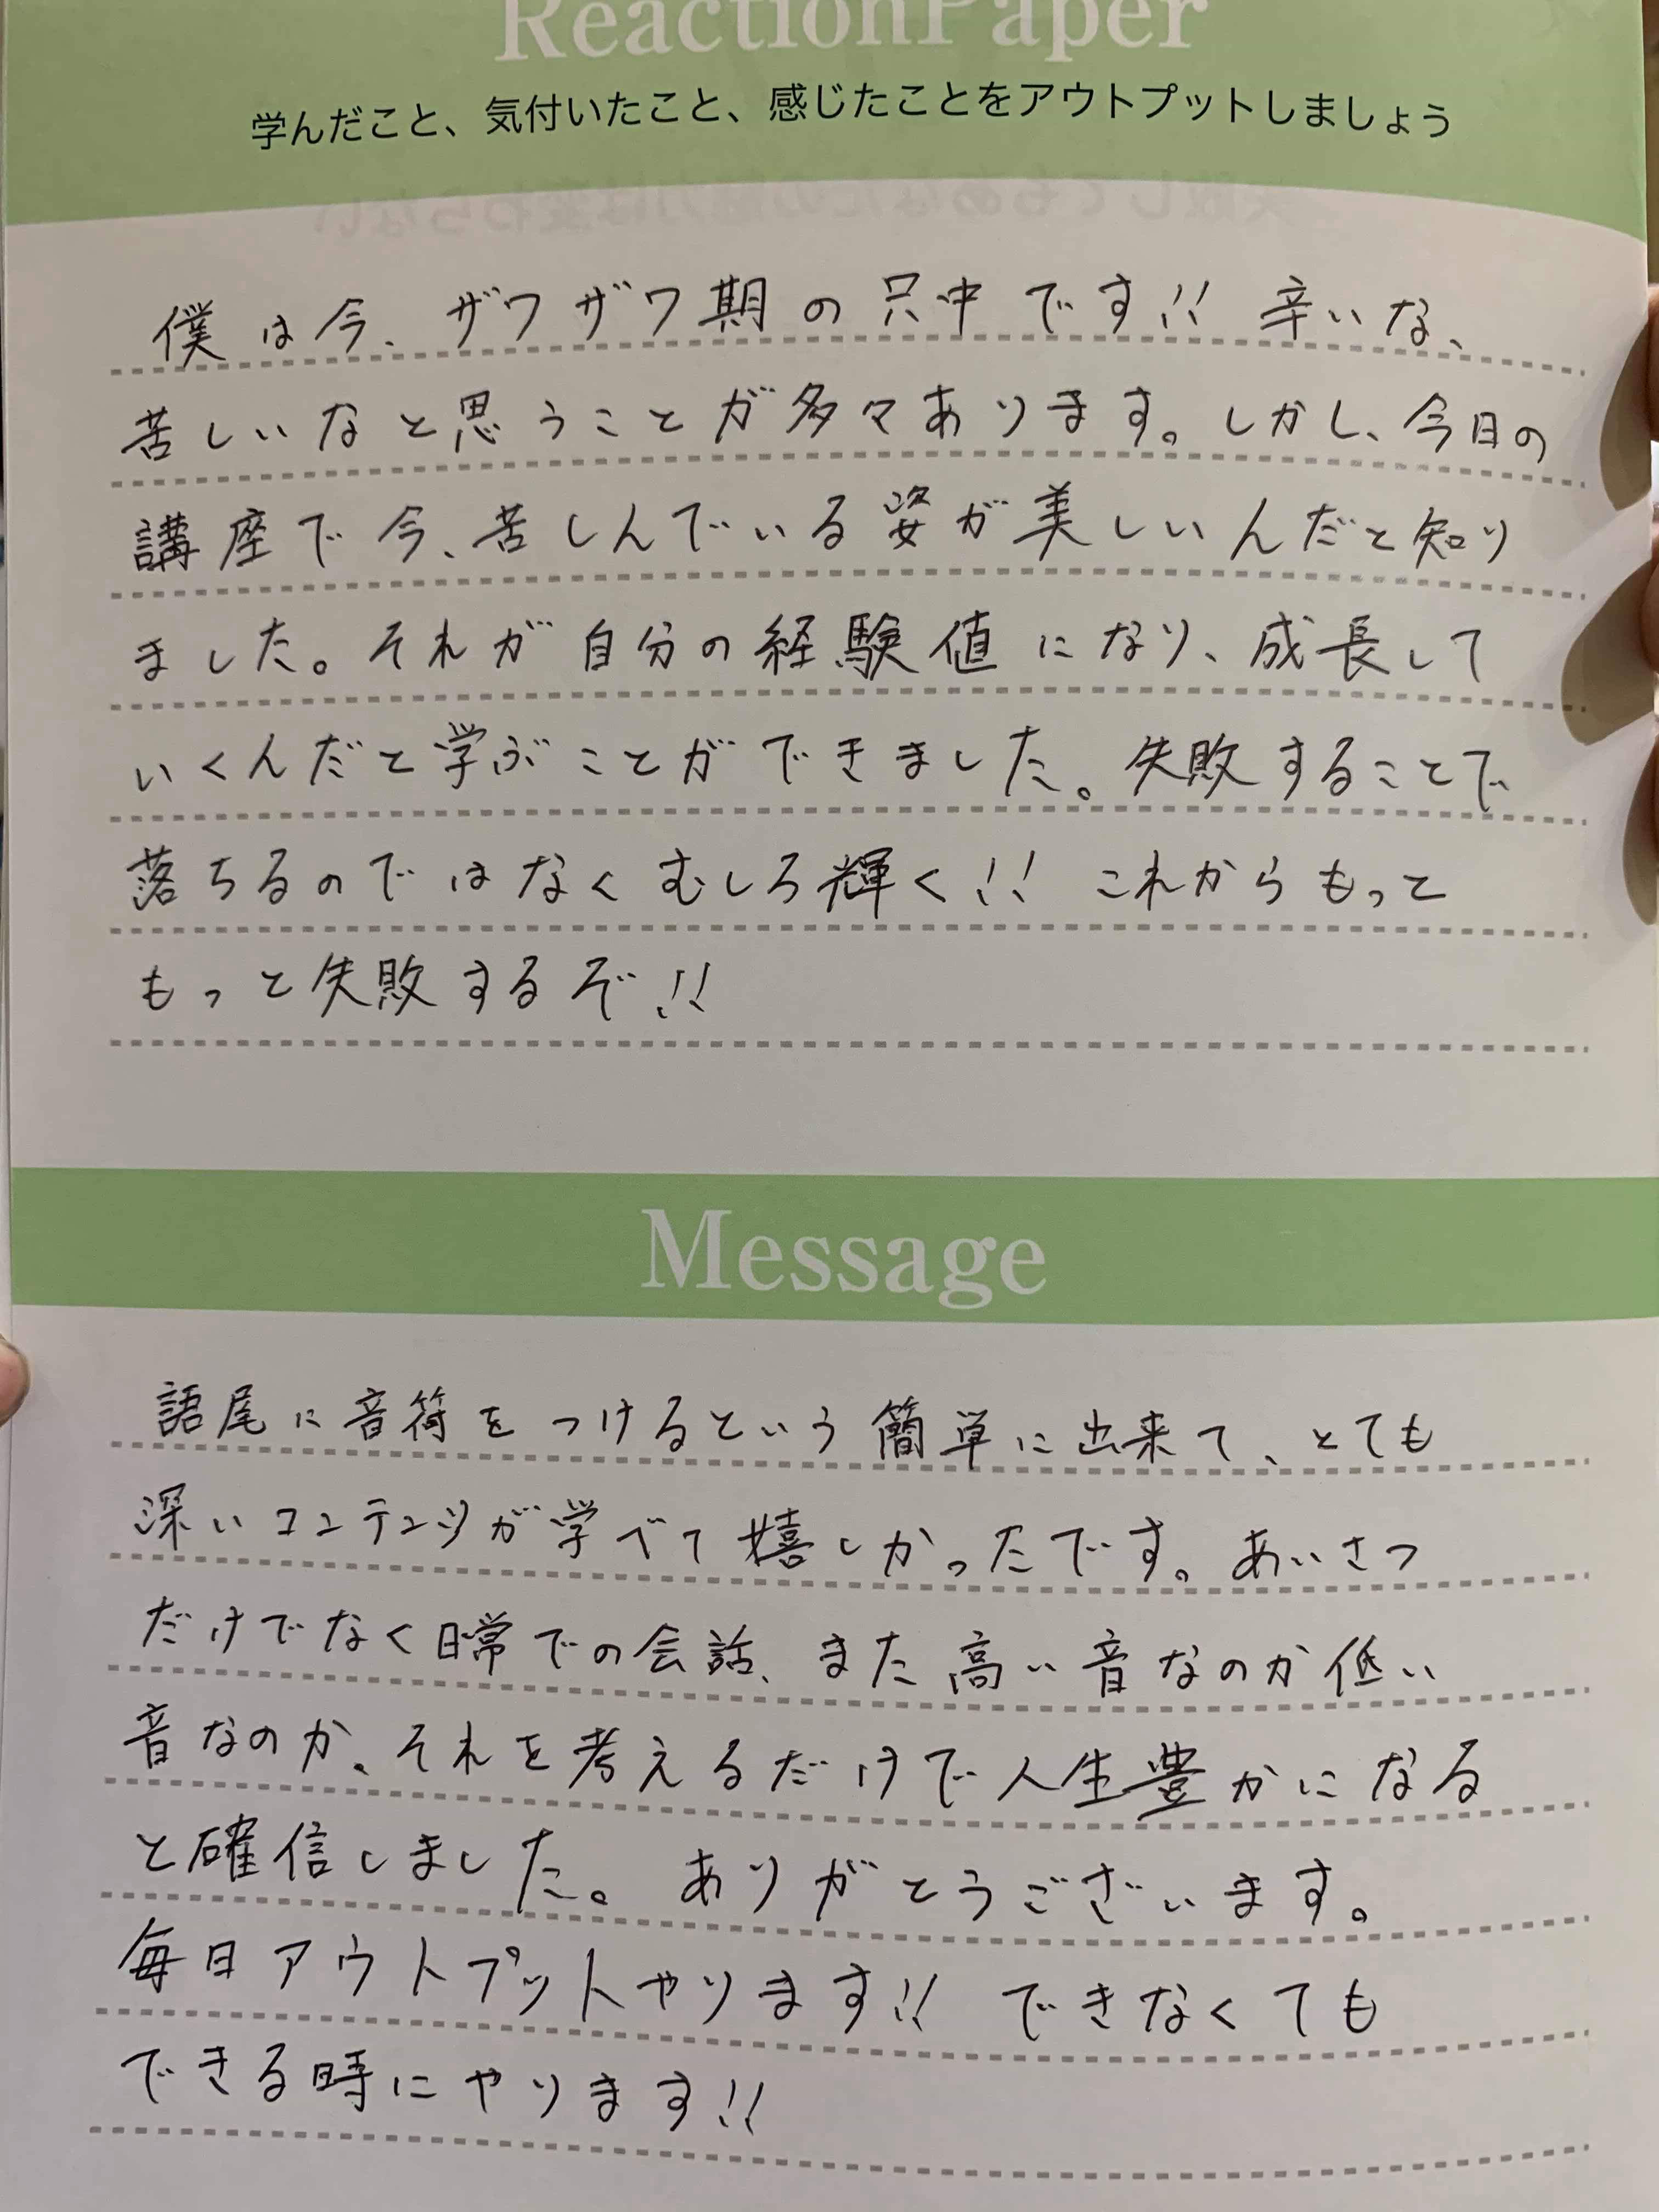 ReactionPaper
学んだこと、気付いたこと、感じたことをアウトプットしましょう
僕は今、ザワザワ期の只中です!! 辛いな、
苦しいなと思うことが多々あります。しかし、今日の
講座で今、苦しんでいる姿が美しいんだと知り
ました。それが自分の経験値になり、成長して
いくんだと学ぶことができました。失敗することで
落ちるのではなくむしろ輝く!! これからもって
もっと失敗するぞ!!
Message
語尾に音符をつけるという簡単に出来て、とても
深いコンテンツが学べて嬉しかったです。あいさつ
だけでなく日常での会話、また高い音なのか低い
音なのか、それを考えるだけで人生豊かになる
と確信しました。ありがとうございます。
毎日アウトプットやります!! できなくても
できる時にやります!!